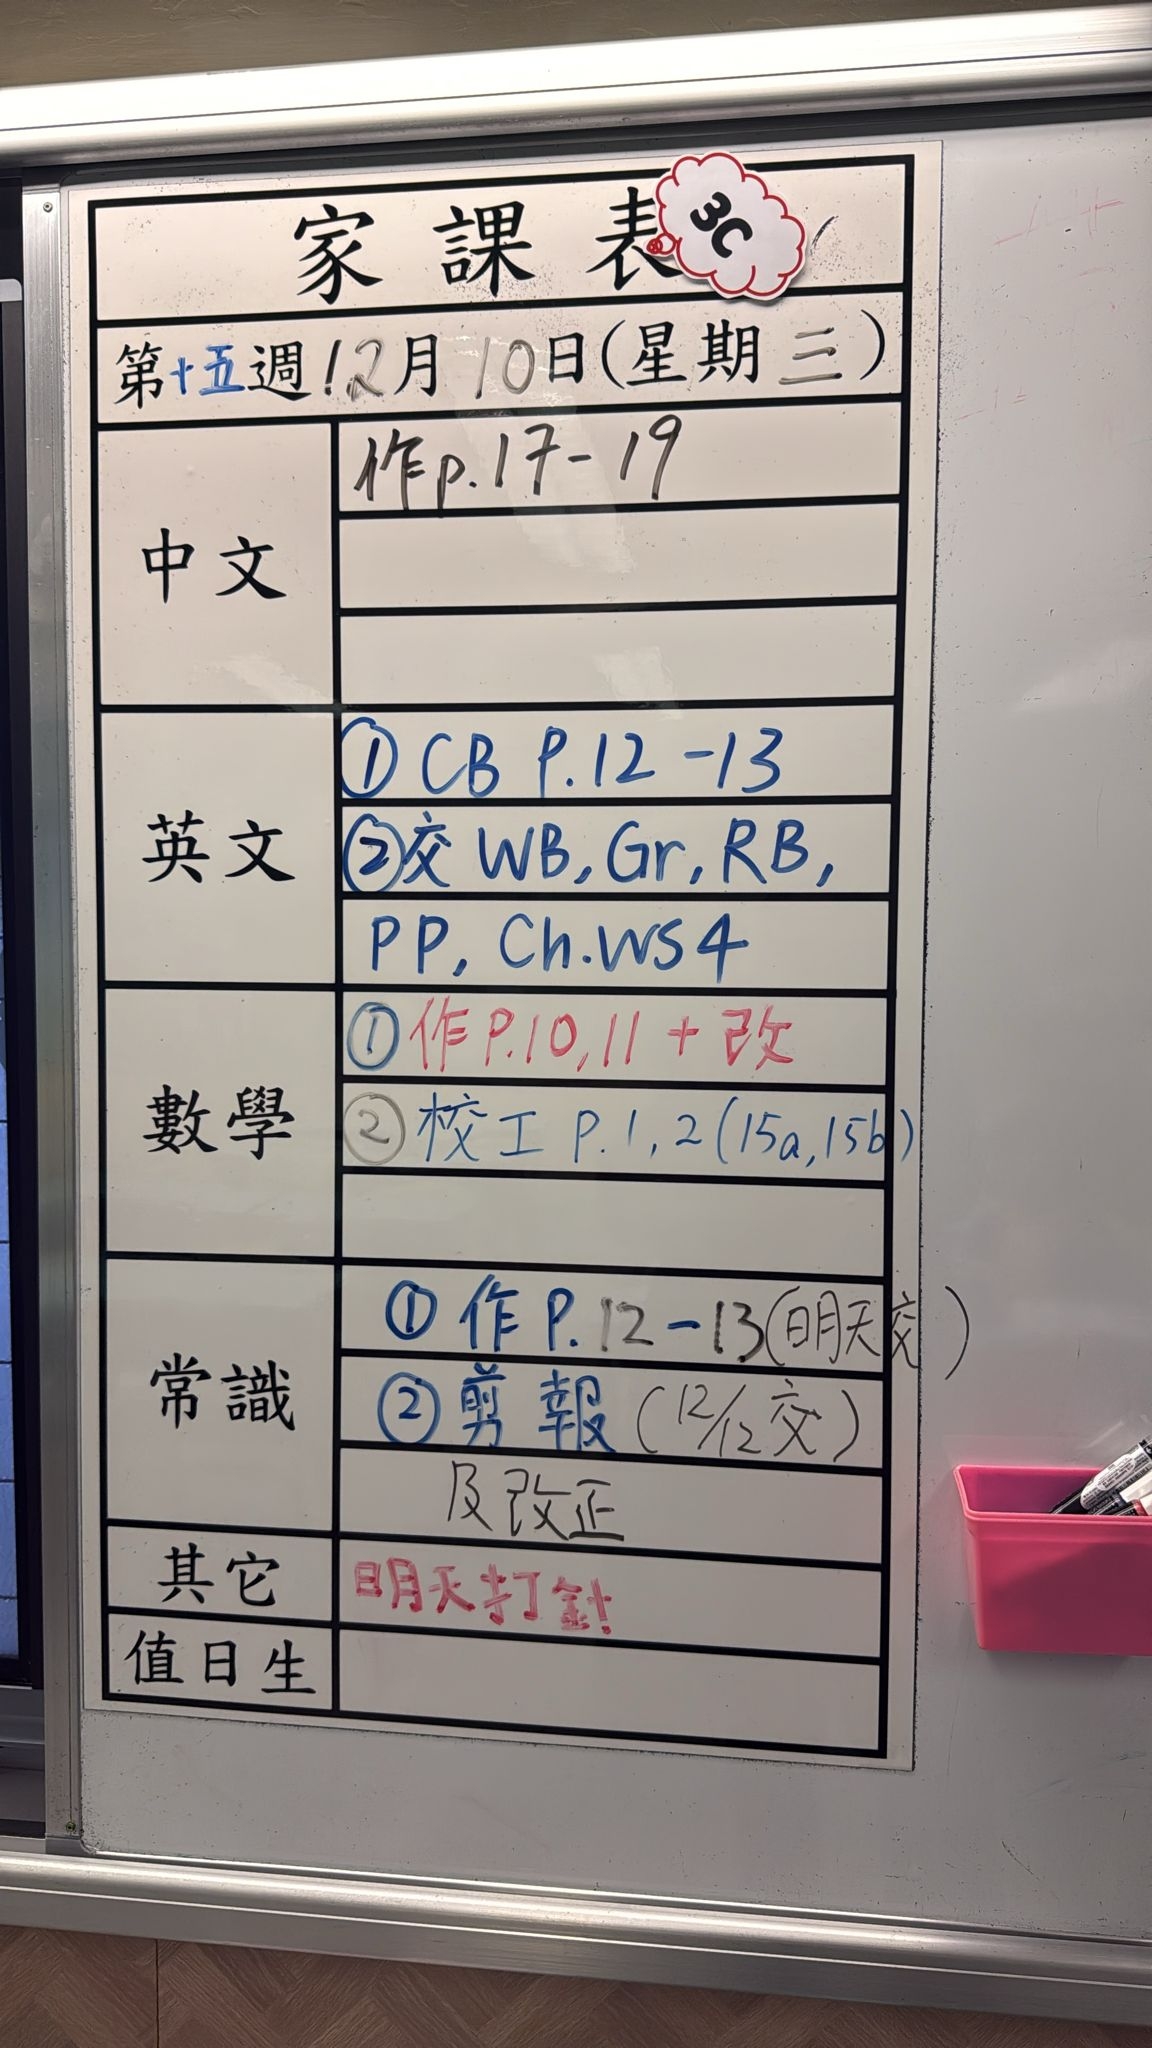 家課表
3C
第十五週12月10日(星期三)
中文
作p.17-19
英文
①CB P.12-13
②交WB,Gr,RB,
PP,Ch.WS4
數學
①作P.10,11+改
②校工P.1,2(15a,15b)
常識
①作P.12-13(明天交)
②剪報(12/12交)
及改正
其它
明天打針
值日生